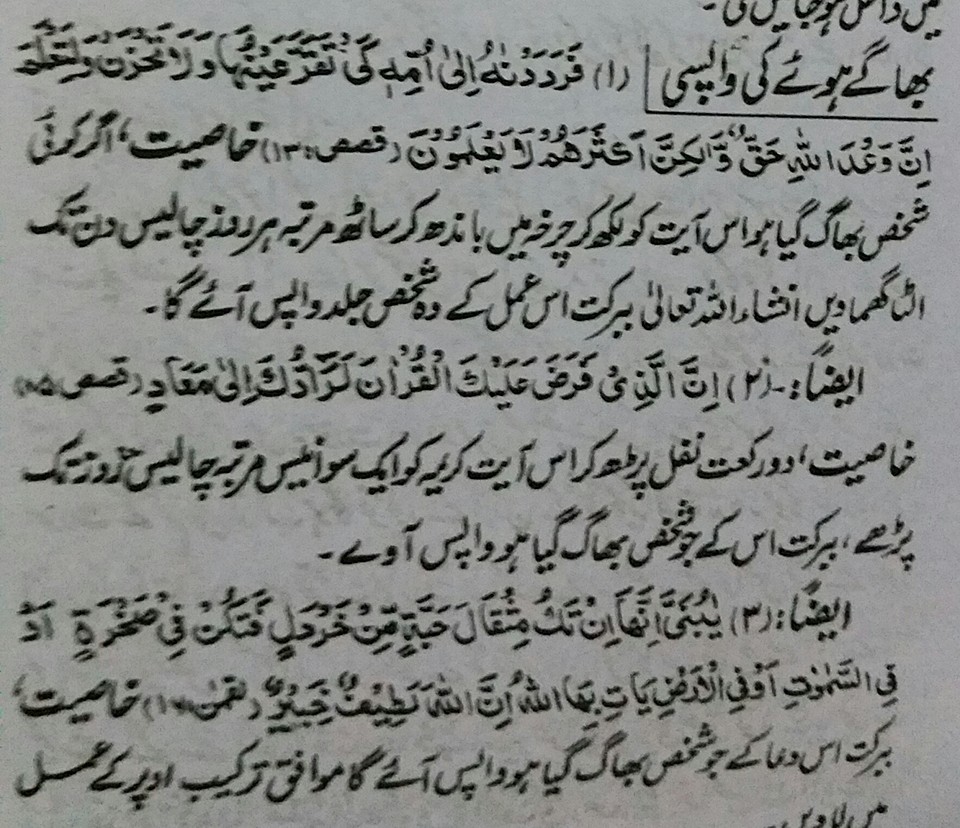 میں داخل ہو جائیں گی۔
بھاگے ہوئے کی واپسی (۱) فَرَدَدْنٰهُ اِلٰٓى اُمِّهٖ كَىْ تَقَرَّ عَيْنُهَا وَلَا تَحْزَنَ وَلِتَعْلَمَ
اِنَّ وَعْدَ اللهِ حَقٌّ وَّلٰكِنَّ اَكْثَرَهُمْ لَا يَعْلَمُوْنَ (قصص:۱۳) خاصیت، اگر کوئی
شخص بھاگ گیا ہو اس آیت کو لکھ کر چرخہ میں باندھ کر ساٹھ مرتبہ ہر روز چالیس دن تک
الٹا گھماویں انشاء اللہ تعالیٰ ببرکت اس عمل کے وہ شخص جلد واپس آئے گا۔
ایضًا:۔ (۲) اِنَّ الَّذِىْ فَرَضَ عَلَيْكَ الْقُرْاٰنَ لَرَآدُّكَ اِلٰى مَعَادٍ (قصص:۸۵)
خاصیت، دو رکعت نفل پڑھ کر اس آیت کریمہ کو ایک سو انیس مرتبہ چالیس روز تک
پڑھے، ببرکت اس کے جو شخص بھاگ گیا ہو واپس آوے۔
ایضًا: (۳) يٰبُنَىَّ اِنَّهَآ اِنْ تَكُ مِثْقَالَ حَبَّةٍ مِّنْ خَرْدَلٍ فَتَكُنْ فِىْ صَخْرَةٍ اَوْ
فِى السَّمٰوٰتِ اَوْ فِى الْاَرْضِ يَاْتِ بِهَا اللهُ اِنَّ اللهَ لَطِيْفٌ خَبِيْرٌ (لقمٰن:۱۶) خاصیت،
ببرکت اس دعا کے جو شخص بھاگ گیا ہو واپس آئے گا موافق ترکیب اوپر کے عمل
میں لاویں۔